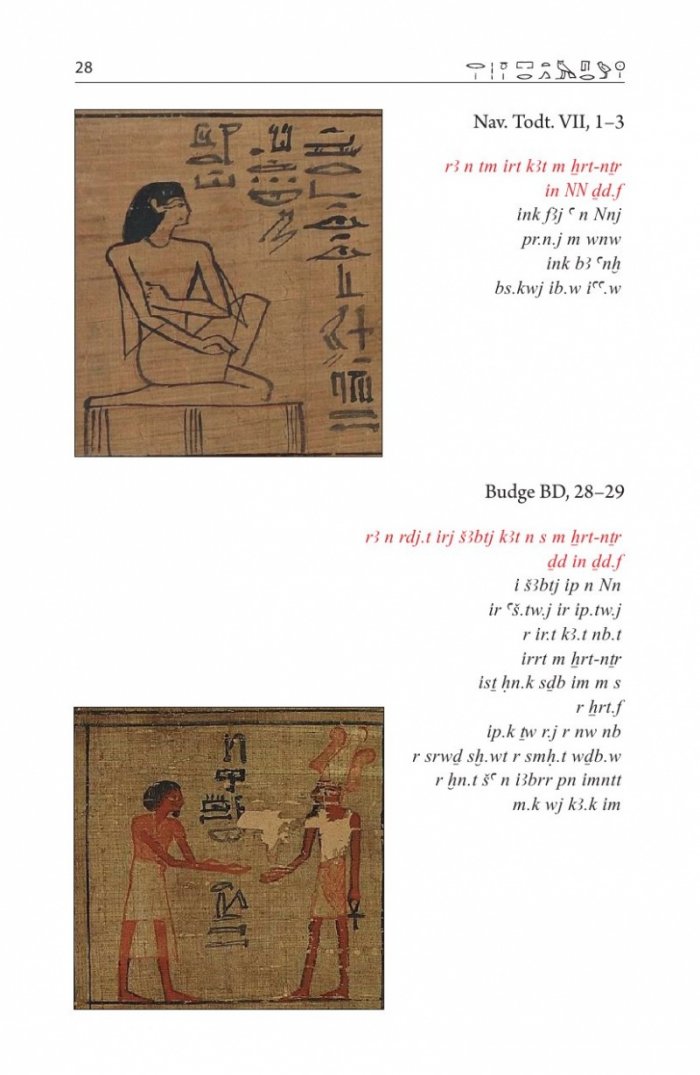 28
Nav. Todt. VII, 1–3
rꜣ n tm irt kꜣt m ẖrt-nṯr
in NN ḏd.f
ink fꜣj ꜥ n Nnj
pr.n.j m wnw
ink bꜣ ꜥnḫ
bs.kwj ib.w iꜥꜥ.w
Budge BD, 28–29
rꜣ n rdj.t irj šꜣbtj kꜣt n s m ẖrt-nṯr
ḏd in ḏd.f
i šꜣbtj ip n Nn
ir ꜥš.tw.j ir ip.tw.j
r ir.t kꜣ.t nb.t
irrt m ẖrt-nṯr
isṯ ḥn.k sḏb im m s
r ẖrt.f
ip.k ṯw r.j r nw nb
r srwḏ sḫ.wt r smḥ.t wḏb.w
r ẖn.t šꜥ n iꜣbrr pn imntt
m.k wj kꜣ.k im